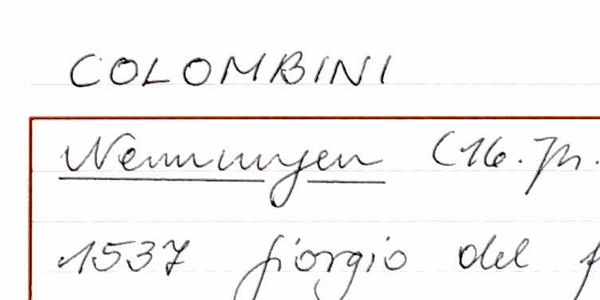 COLOMBINI
Nennungen (16. Jh.
1537 Giorgio del